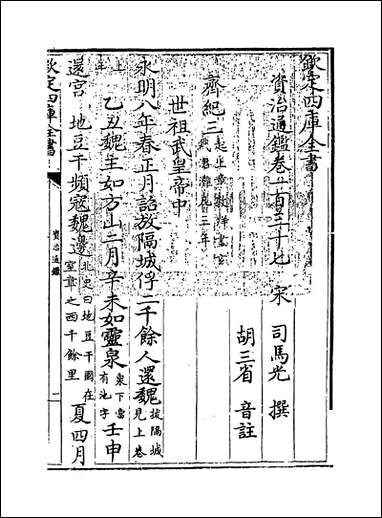 欽定四庫全書
資治通鑑卷一百三十七
宋 司馬光 撰
胡三省 音註
齊紀三 起上章敦牂盡玄黓涒灘凡三年
世祖武皇帝中
永明八年春正月詔放隔城俘二千餘人還魏 拔隔城見上卷
上年 乙丑魏主如方山二月辛未如靈泉 泉下當有池字 壬申
還宮 地豆干頻寇魏邊 北史曰地豆干國在室韋之西千餘里 夏四月
欽定四庫全書
資治通鑑
一